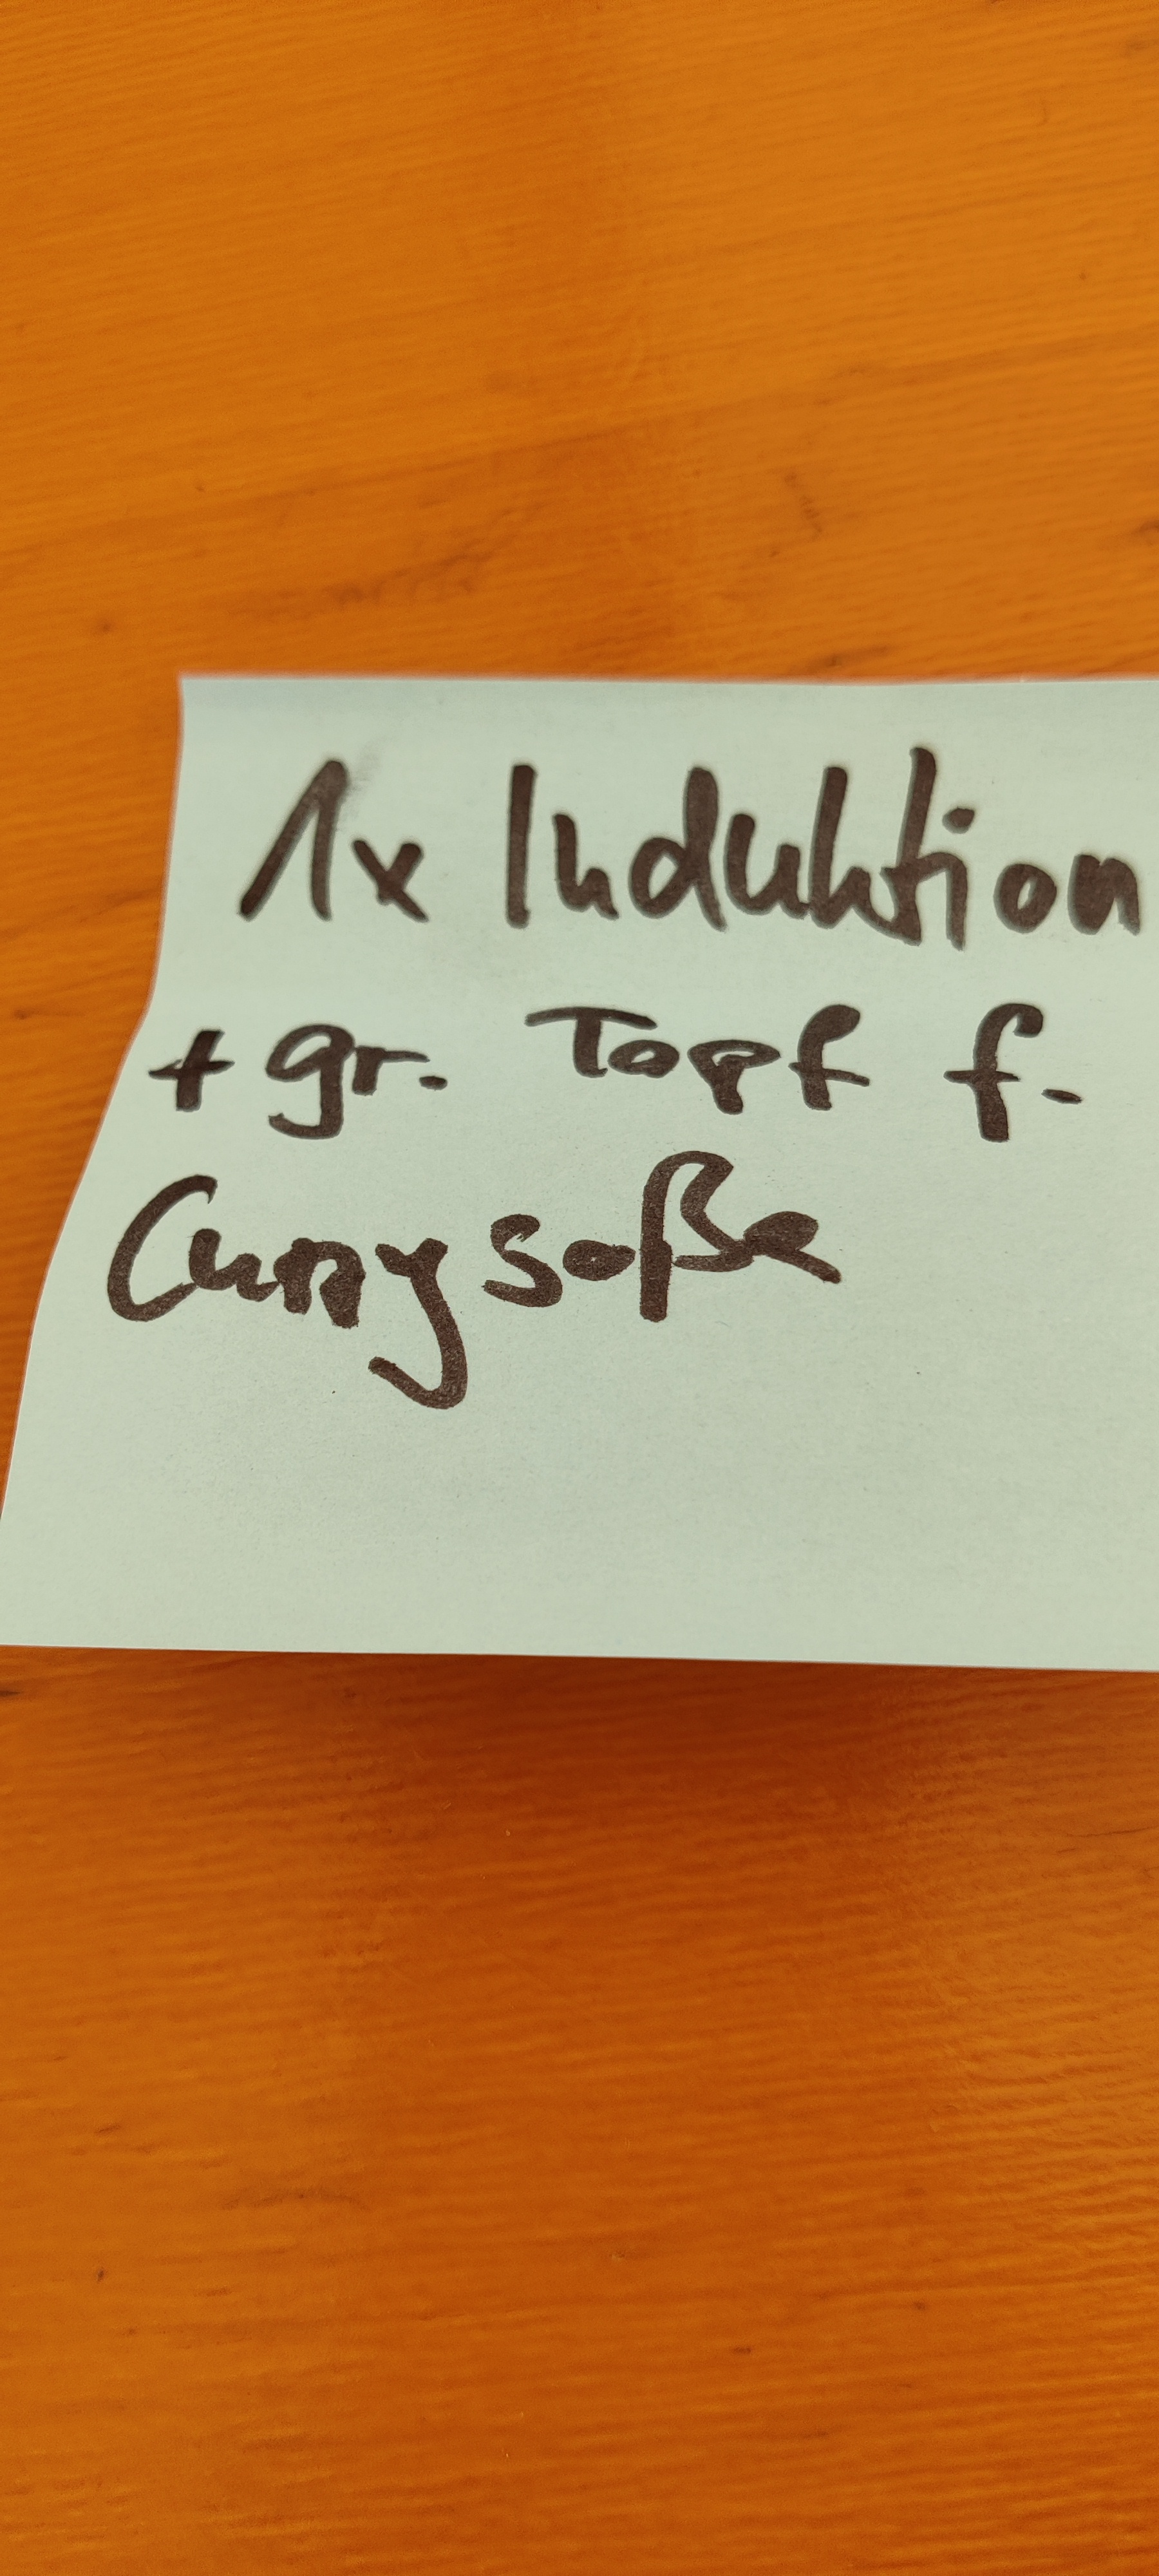 1x Induktion
+ gr. Topf f.
Currysoße